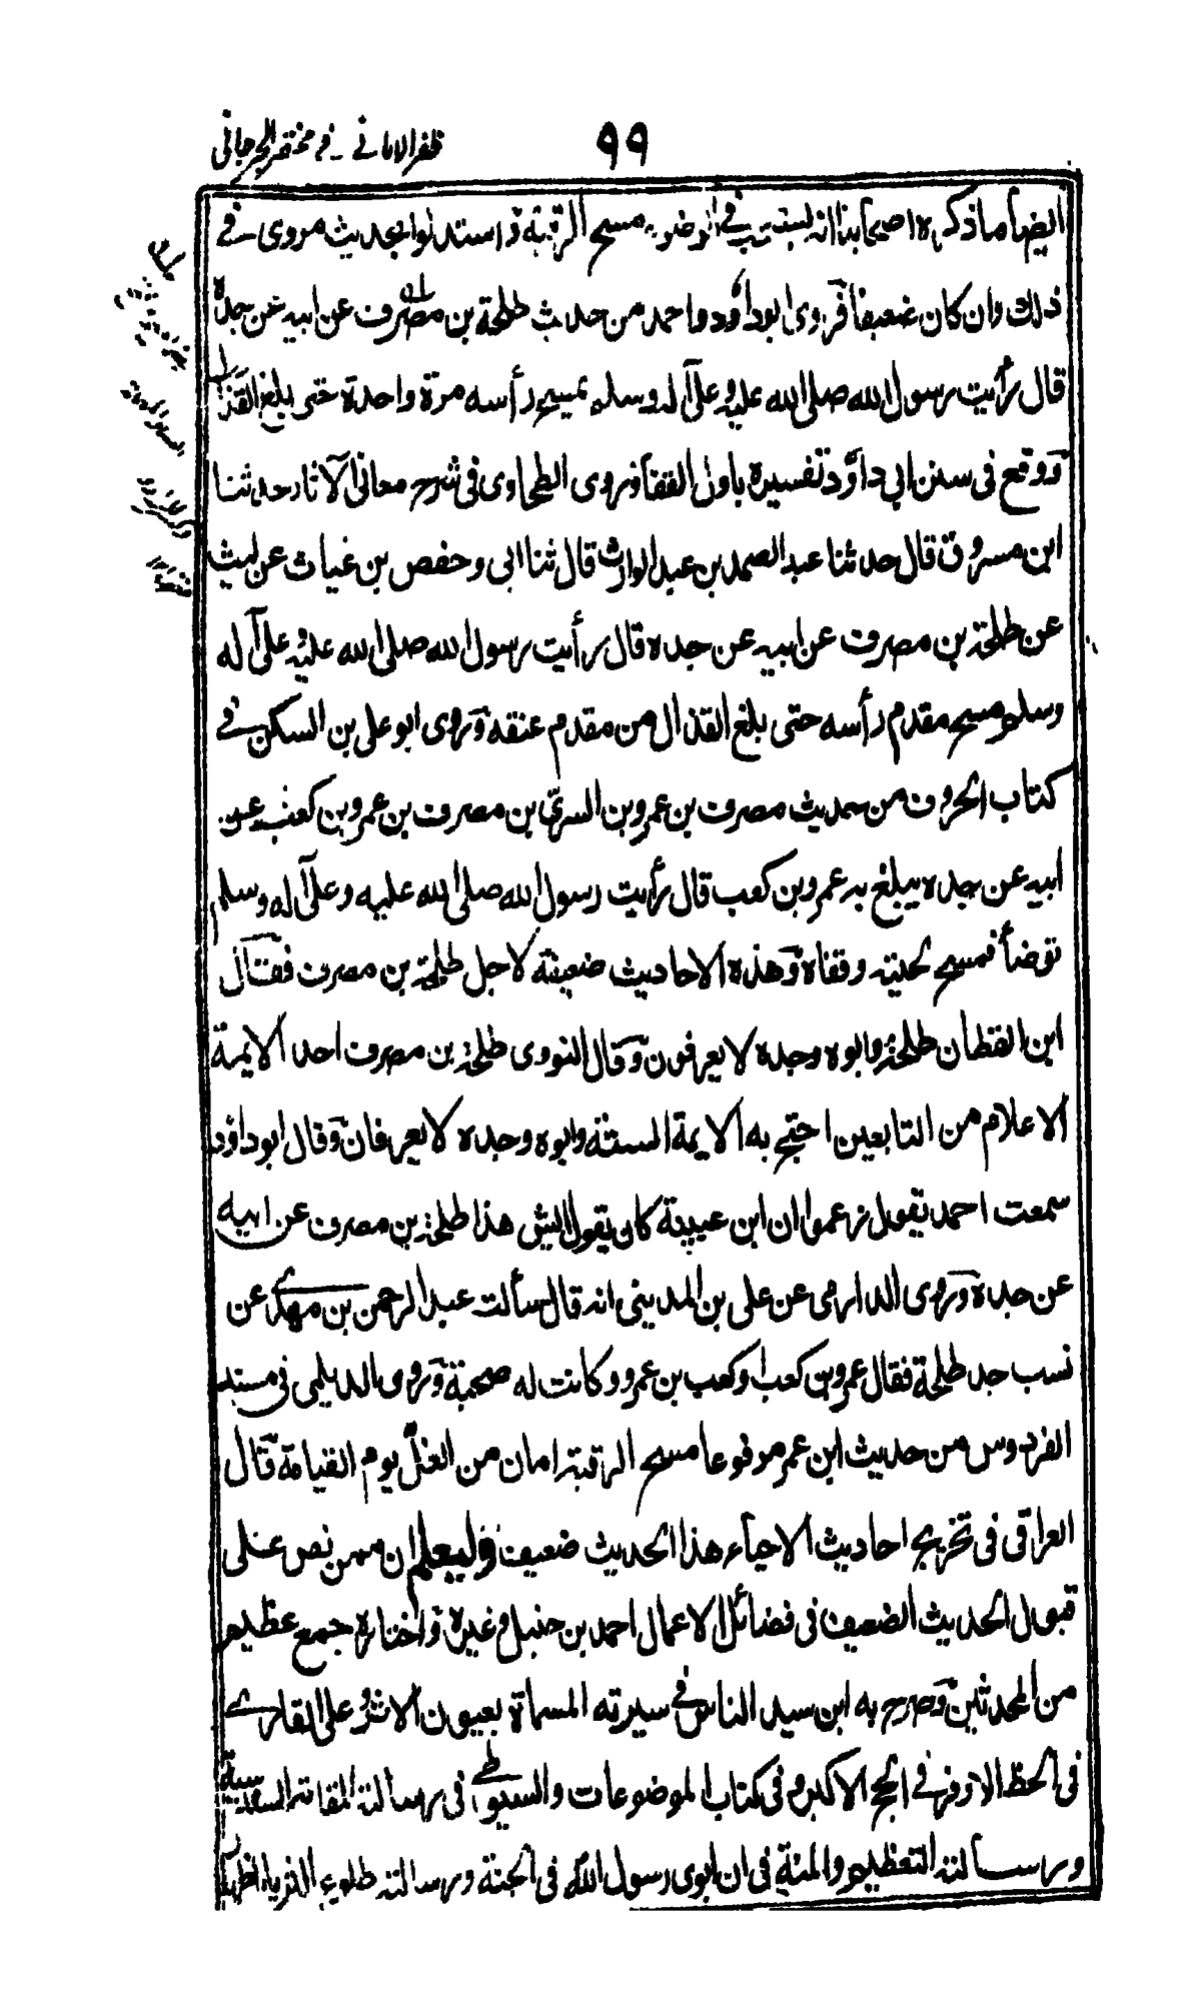 ظفر الامانی فی مختصر الجرجانی
٩٩
ایضا ما ذکره اصحابنا انه یستحب فی الوضوء مسح الرقبة واستدلوا بحدیث مروی فی
ذلک وان کان ضعیفا فروی ابو داؤد واحمد من حدیث طلحة بن مصرف عن ابیه عن جده
قال رأیت رسول الله صلی الله علیه وعلی آله وسلم یمسح رأسه مرة واحدة حتی بلغ القذال
ووقع فی سنن ابی داؤد تفسیره باول القفا وروی الطحاوی فی شرح معانی الآثار حدثنا
ابن مسروق قال حدثنا عبد الصمد بن عبد الوارث قال ثنا ابی وحفص بن غیاث عن لیث
عن طلحة بن مصرف عن ابیه عن جده قال رأیت رسول الله صلی الله علیه وعلی آله
وسلم مسح مقدم رأسه حتی بلغ القذال من مقدم عنقه وروی ابو علی بن السکن فی
کتاب الحروف من حدیث مصرف بن عمرو بن السری بن مصرف بن عمرو بن کعب عن
ابیه عن جده یبلغ به عمرو بن کعب قال رأیت رسول الله صلی الله علیه وعلی آله وسلم
توضأ فمسح لحیته وقفاه وهذه الاحادیث ضعیفة لاجل طلحة بن مصرف فقال
ابن القطان طلحة وابوه وجده لا یعرفون وقال النووی طلحة بن مصرف احد الایمة
الاعلام من التابعین احتج به الایمة الستة وابوه وجده لا یعرفان وقال ابو داؤد
سمعت احمد یقول زعموا ان ابن عیینة کان یقول ایش هذا طلحة بن مصرف عن ابیه
عن جده وروی الدارمی عن علی بن المدینی انه قال سألت عبد الرحمن بن مهدی عن
نسب جد طلحة فقال عمرو بن کعب او کعب بن عمرو وکانت له صحبة وروی الدیلمی فی مسند
الفردوس من حدیث ابن عمر مرفوعا مسح الرقبة امان من الغل یوم القیامة قال
العراقی فی تخریج احادیث الاحیاء هذا الحدیث ضعیف ولیعلم ان ممن نص علی
قبول الحدیث الضعیف فی فضائل الاعمال احمد بن حنبل وغیره واختاره جمع عظیم
من المحدثین وصرح به ابن سید الناس فی سیرته المسماة بعیون الاثر وعلی القاری
فی الحظ الاوفر فی الحج الاکبر وفی کتاب الموضوعات والسیوطی فی رسالته المقامة السندسیة
ورسالته التعظیم والمنة فی ان ابوی رسول الله فی الجنة ورسالته طلوع الثریا